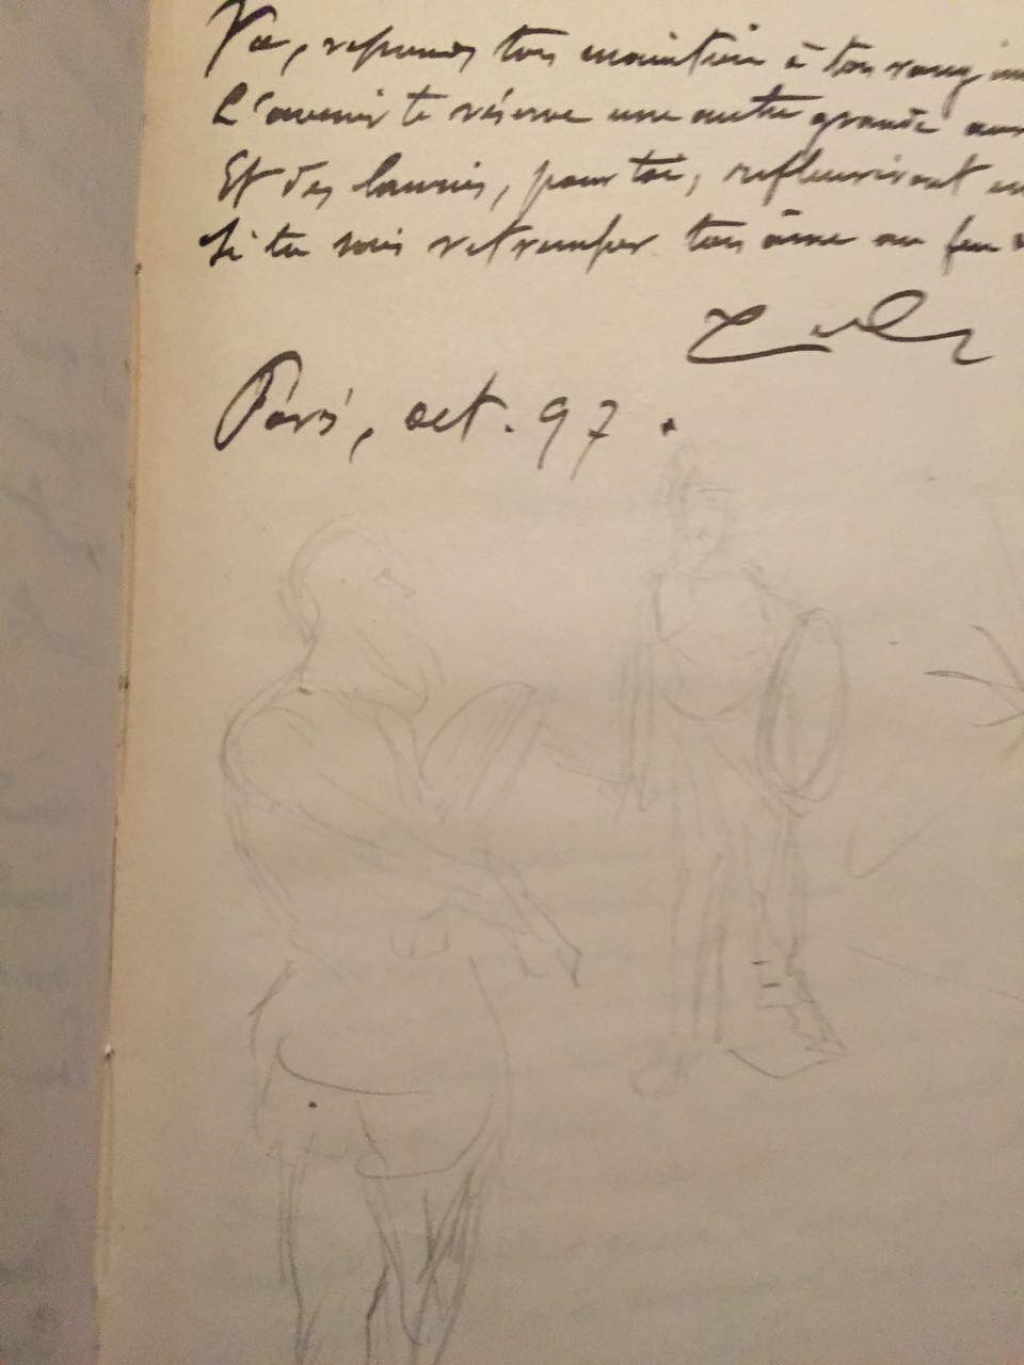 Va, reprends ton maintien à ton rang
L'avenir te réserve une autre grande
Et des lauriers, pour toi, refleuriront
Si tu sais retremper ton âme au feu
Paris, oct. 97.